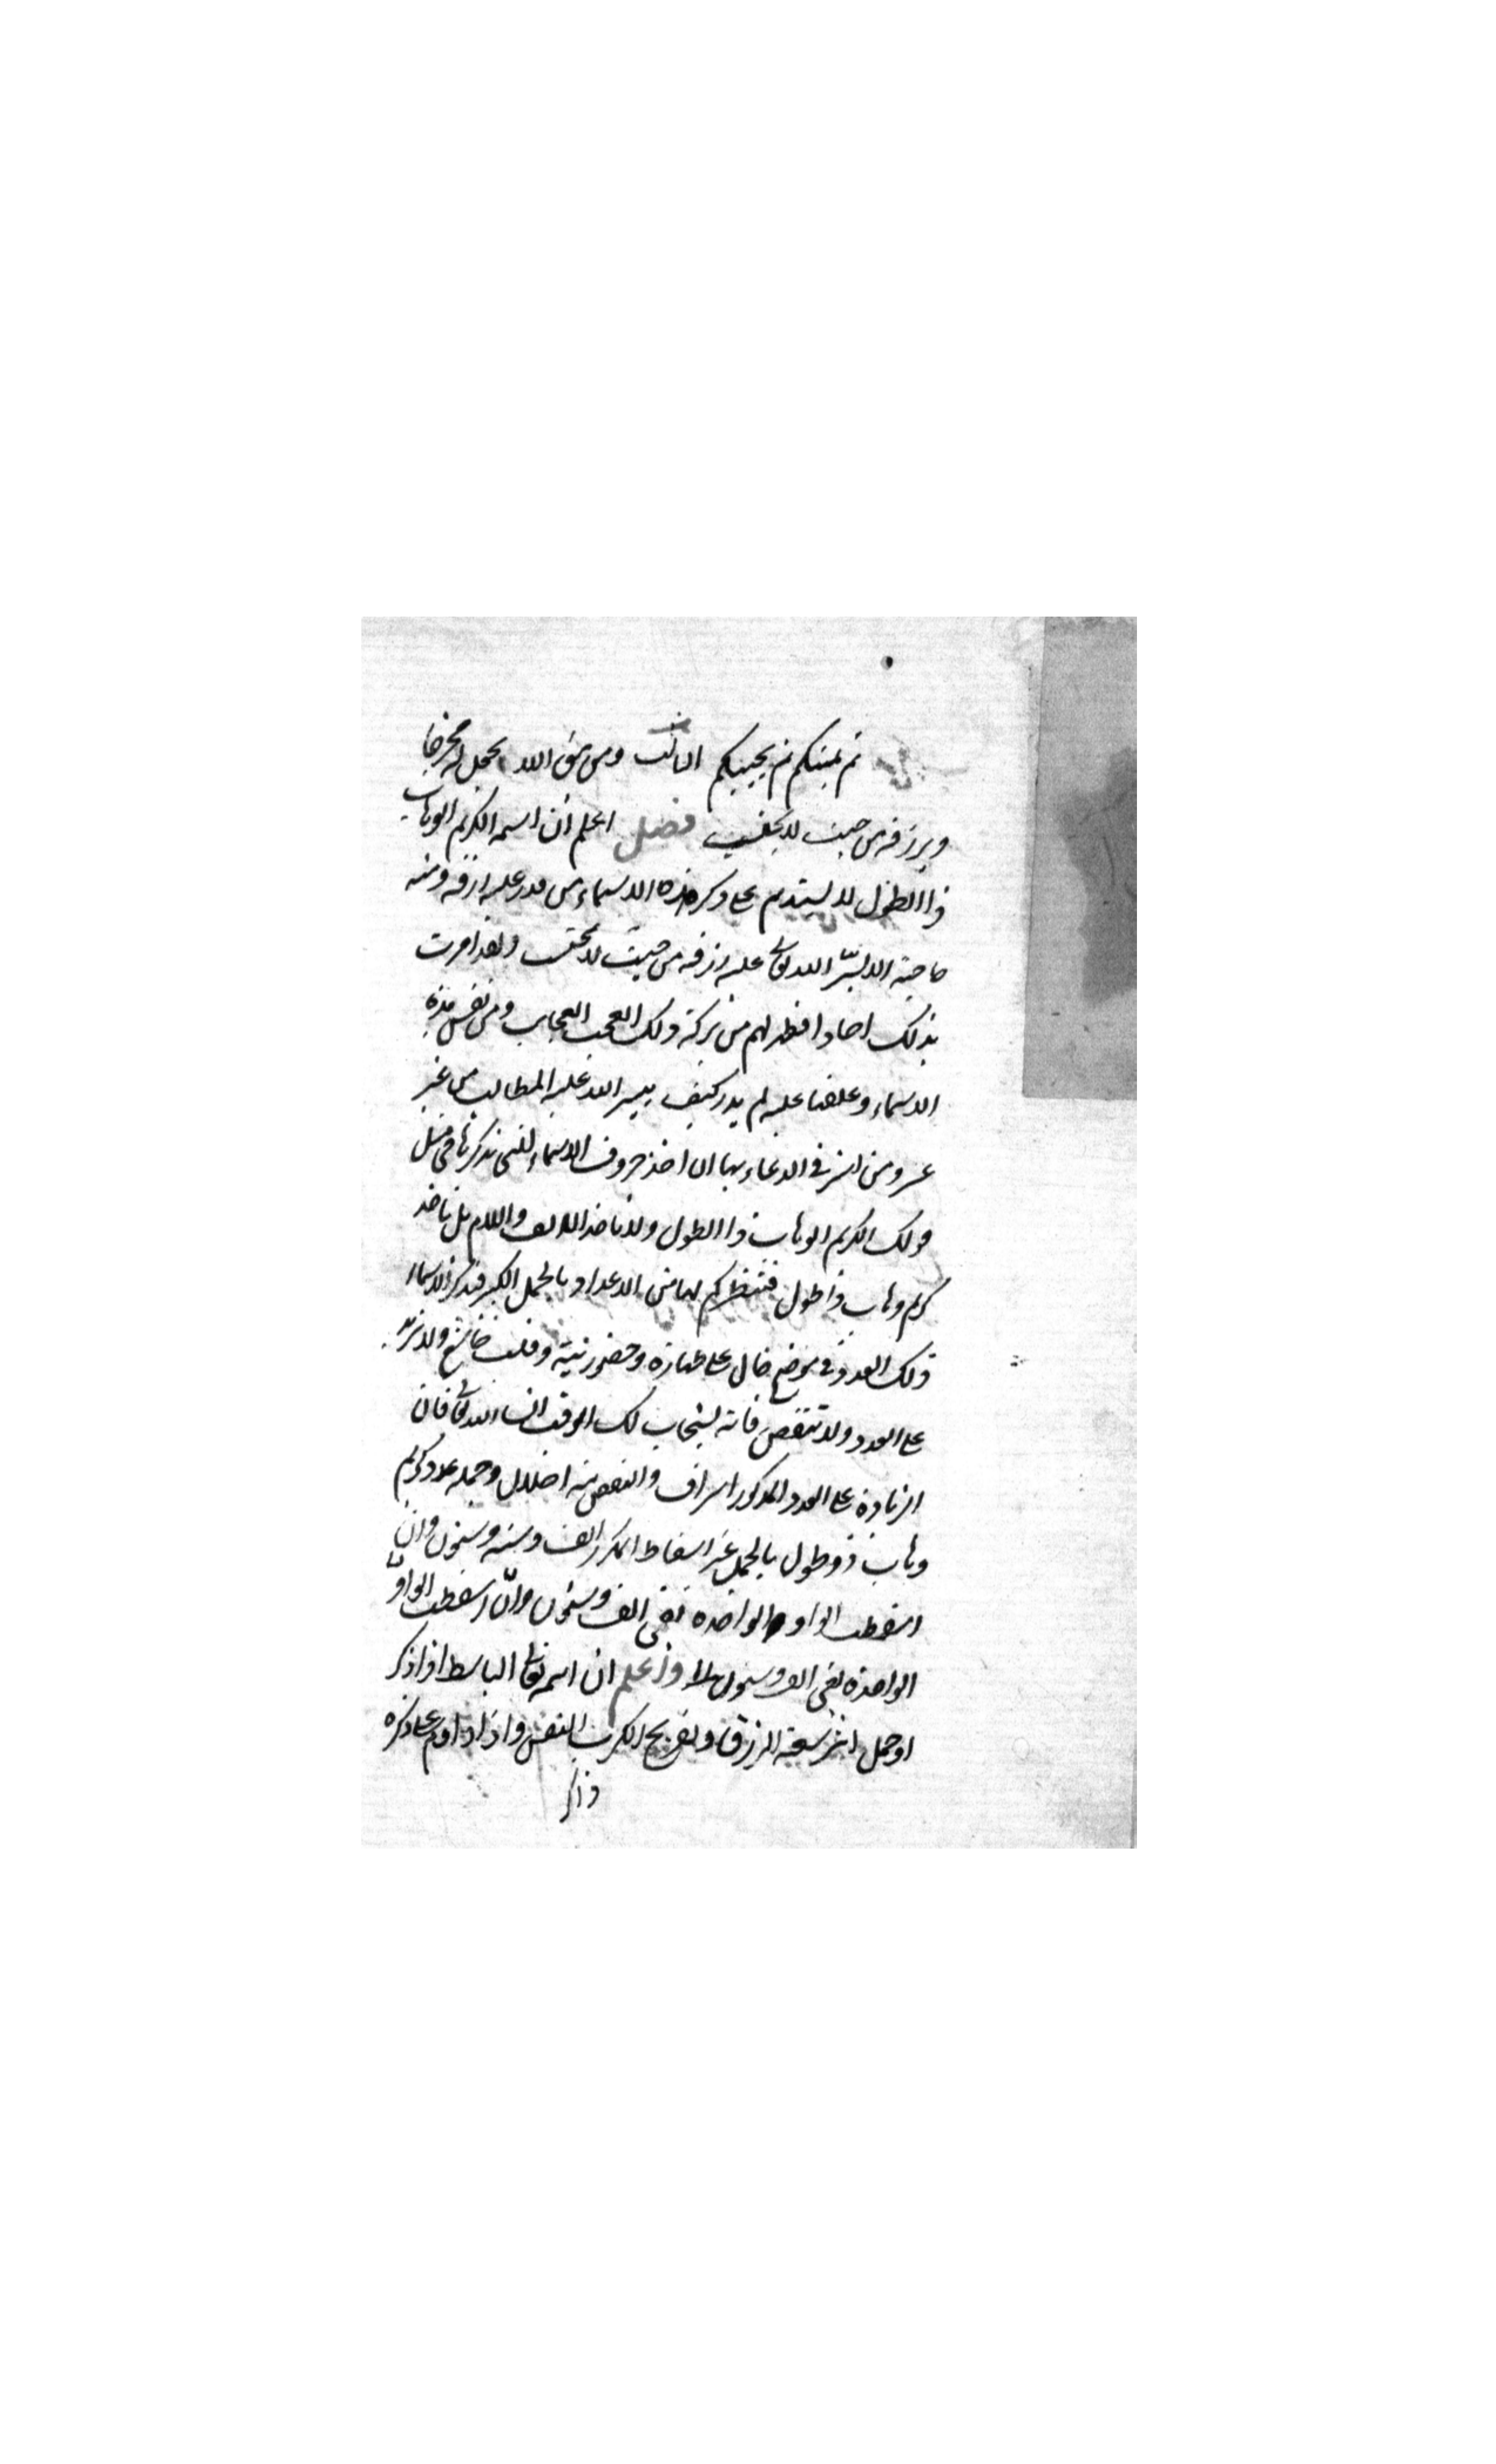 ثم يميتكم ثم يحييكم الثالث ومن يتق الله يجعل له مخرجا
ويرزقه من حيث لا يحتسب فصل اعلم ان اسمه الكريم الوهاب
ذا الطول لا يستديم على ذكر هذه الاسماء من قدر عليه رزقه ومسته
حاجة الا يسر الله تعالى عليه رزقه من حيث لا يحتسب ولقد امرت
بذلك احادا فظهر لهم من بركة ذلك العجب العجاب ومن نقش هذه
الاسماء وعلقها عليه لم يدر كيف ييسر الله عليه المطالب من غير
عسر ومن السر في الدعاء بها ان تاخذ حروف الاسماء التي تذكرها في مثل
قولك الكريم الوهاب ذا الطول ولا تاخذ الالف واللام بل تاخذ
كريم وهاب ذا طول فتنظر كم لها من الاعداد بالجمل الكبير فتذكر الاسماء
ذلك العدد في موضع خال على طهارة وحضور نية وقلب خاشع ولا تزيد
على العدد ولا تنقص فانه يستجاب لك الوقت انشا الله تعالى فان
الزيادة على العدد المذكور اسراف والنقص منه اخلال وجملة عدد كريم
وهاب ذو طول بالجمل غير اسقاط المكرر الف وستة وستون وان
اسقطت الواو الواحدة بقي الف وستون وان اسقطت الواو
الواحدة بقي الف وستون واعلم ان اسمه تعالى الباسط اذا ذكر
او حمل اثر سعة الرزق وتفريج الكرب النفس واذا داوم على ذكره
ذاكر